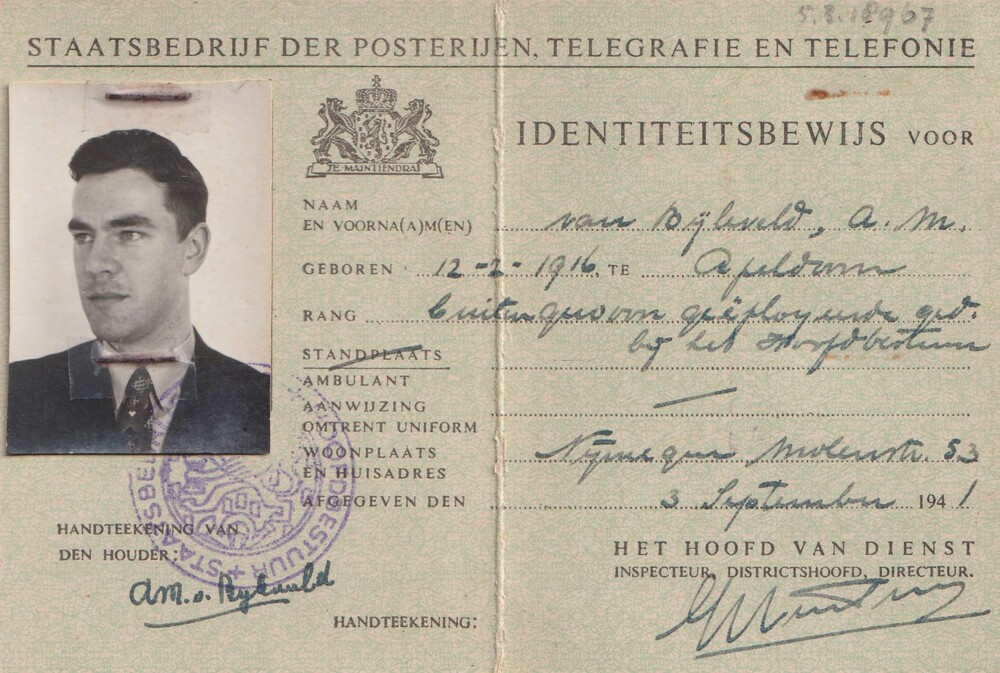 STAATSBEDRIJF DER POSTERIJEN, TELEGRAFIE EN TELEFONIE
JE MAINTIENDRAI
IDENTITEITSBEWIJS VOOR
NAAM
EN VOORNA(A)M(EN) van Bijleveld, A. M.
GEBOREN 12-2-1916 TE Apeldoorn
RANG buitengewoon geëmployeerde ged.
bij het Hoofdbestuur
STANDPLAATS
AMBULANT
AANWIJZING
OMTRENT UNIFORM —
WOONPLAATS
EN HUISADRES Nijmegen Molenstr. 53
AFGEGEVEN DEN 3 September 1941
HANDTEEKENING VAN
DEN HOUDER:
AM. v. Bijleveld
HET HOOFD VAN DIENST
INSPECTEUR, DISTRICTSHOOFD, DIRECTEUR.
HANDTEEKENING: